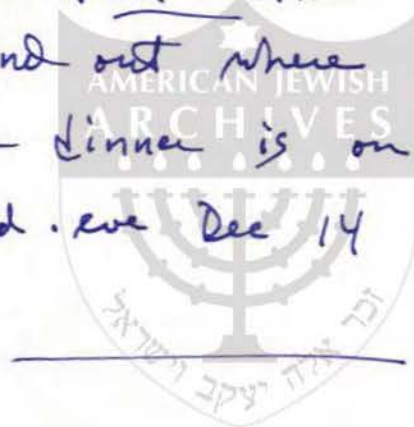 nd out where
AMERICAN JEWISH
ARCHIVES
dinner is on
d. eve Dec 14
זכר אלה יעקב וישראל